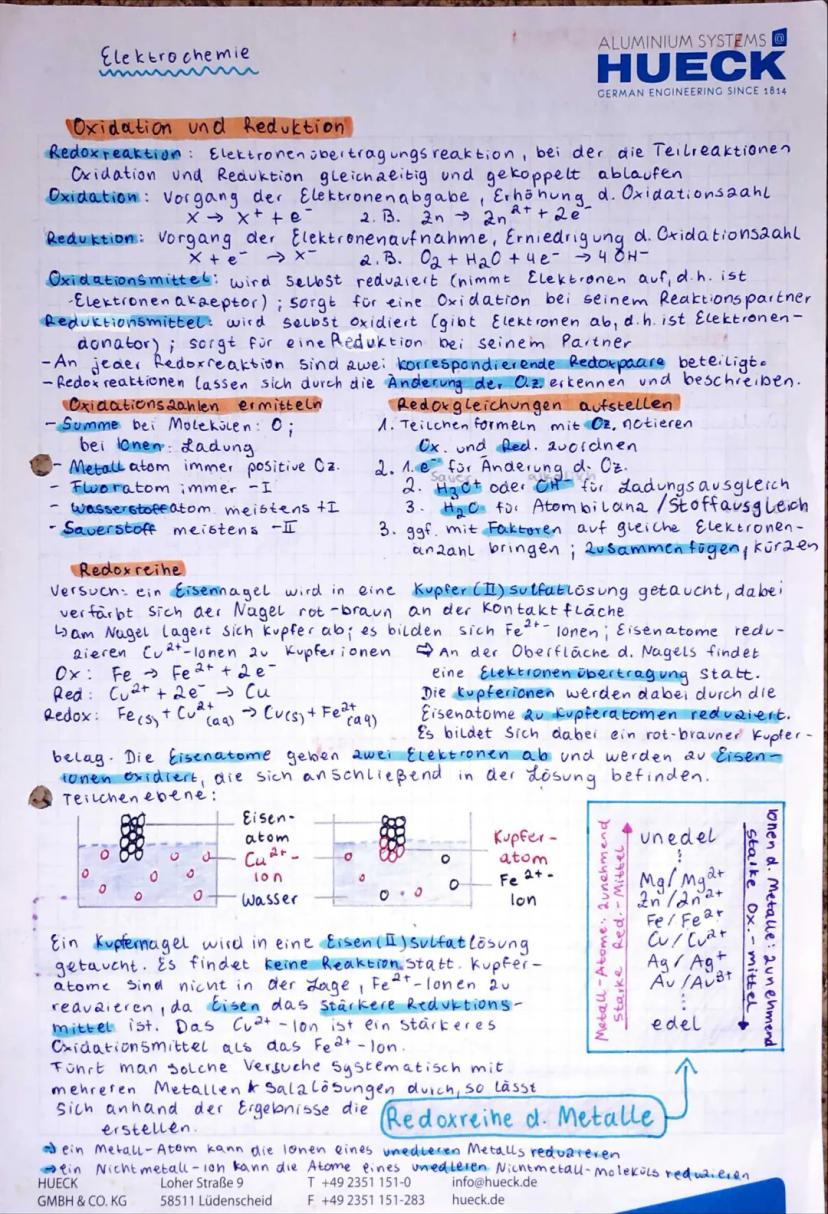 Elektrochemie
ALUMINIUM SYSTEMS @
HUECK
GERMAN ENGINEERING SINCE 1814
Oxidation und Reduktion
Redoxreaktion: Elektronenübertragungsreaktion, bei der die Teilreaktionen
Oxidation und Reduktion gleichzeitig und gekoppelt ablaufen
Oxidation: Vorgang der Elektronenabgabe, Erhöhung d. Oxidationszahl
X → X⁺ + e⁻ z. B. Zn → Zn²⁺ + 2e⁻
Reduktion: Vorgang der Elektronenaufnahme, Erniedrigung d. Oxidationszahl
X + e⁻ → X⁻ z. B. O₂ + H₂O + 4e⁻ → 4 OH⁻
Oxidationsmittel: wird selbst reduziert (nimmt Elektronen auf, d.h. ist
Elektronenakzeptor); sorgt für eine Oxidation bei seinem Reaktionspartner
Reduktionsmittel: wird selbst oxidiert (gibt Elektronen ab, d.h. ist Elektronen-
donator); sorgt für eine Reduktion bei seinem Partner
- An jeder Redoxreaktion sind zwei korrespondierende Redoxpaare beteiligt.
- Redoxreaktionen lassen sich durch die Änderung der Oz. erkennen und beschreiben.
Oxidationszahlen ermitteln
- Summe bei Molekülen: 0;
bei Ionen: Ladung
- Metallatom immer positive Oz.
- Fluoratom immer -I
- Wasserstoffatom meistens +I
- Sauerstoff meistens -II
Redoxgleichungen aufstellen
1. Teilchenformeln mit Oz. notieren
Ox. und Red. zuordnen
2. 1. e⁻ für Änderung d. Oz.
sauer alkalisch
2. H₃O⁺ oder OH⁻ für Ladungsausgleich
3. H₂O für Atombilanz / Stoffausgleich
3. ggf. mit Faktoren auf gleiche Elektronen-
anzahl bringen; zusammenfügen, kürzen
Redoxreihe
Versuch: ein Eisennagel wird in eine Kupfer(II)sulfatlösung getaucht, dabei
verfärbt sich der Nagel rot-braun an der Kontaktfläche
↳ am Nagel lagert sich Kupfer ab; es bilden sich Fe²⁺-Ionen; Eisenatome redu-
zieren Cu²⁺-Ionen zu Kupferionen
Ox: Fe → Fe²⁺ + 2e⁻
Red: Cu²⁺ + 2e⁻ → Cu
Redox: Fe(s) + Cu²⁺(aq) → Cu(s) + Fe²⁺(aq)
⇨ An der Oberfläche d. Nagels findet
eine Elektronenübertragung statt.
Die Kupferionen werden dabei durch die
Eisenatome zu Kupferatomen reduziert.
Es bildet sich dabei ein rot-brauner Kupfer-
belag. Die Eisenatome geben zwei Elektronen ab und werden zu Eisen-
ionen oxidiert, die sich anschließend in der Lösung befinden.
Teilchenebene:
Eisen-
atom
Cu²⁺-
Ion
Wasser
Kupfer-
atom
Fe²⁺-
Ion
Metall-Atome: zunehmend
starke Red.-Mittel
unedel
Mg/Mg²⁺
Zn/Zn²⁺
Fe/Fe²⁺
Cu/Cu²⁺
Ag/Ag⁺
Au/Au³⁺
edel
Ionen d. Metalle: zunehmend
starke Ox.-mittel
Ein Kupfernagel wird in eine Eisen(II)sulfatlösung
getaucht. Es findet keine Reaktion statt. Kupfer-
atome sind nicht in der Lage, Fe²⁺-Ionen zu
reduzieren, da Eisen das stärkere Reduktions-
mittel ist. Das Cu²⁺-Ion ist ein stärkeres
Oxidationsmittel als das Fe²⁺-Ion.
Führt man solche Versuche systematisch mit
mehreren Metallen & Salzlösungen durch, so lässt
sich anhand der Ergebnisse die Redoxreihe d. Metalle
erstellen.
→ ein Metall-Atom kann die Ionen eines unedleren Metalls reduzieren
→ ein Nichtmetall-Ion kann die Atome eines unedleren Nichtmetall-Moleküls reduzieren
HUECK Loher Straße 9 T +49 2351 151-0 info@hueck.de
GMBH & CO. KG 58511 Lüdenscheid F +49 2351 151-283 hueck.de